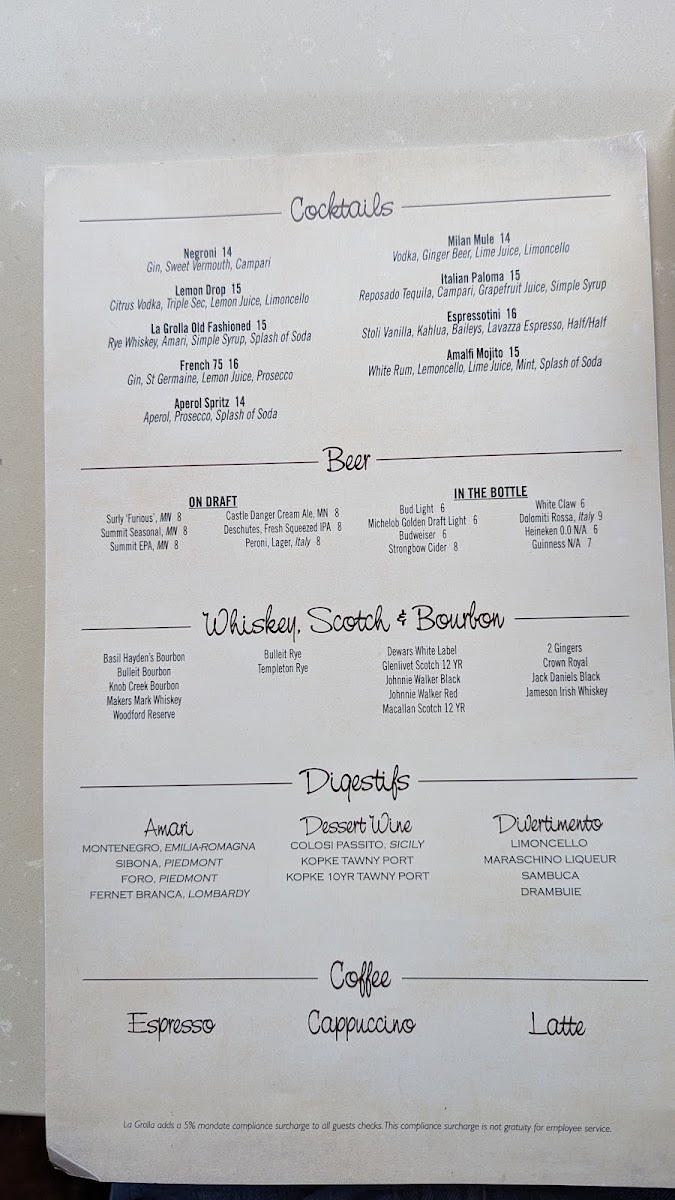 Cocktails
Negroni 14
Gin, Sweet Vermouth, Campari
Lemon Drop 15
Citrus Vodka, Triple Sec, Lemon Juice, Limoncello
La Grolla Old Fashioned 15
Rye Whiskey, Amari, Simple Syrup, Splash of Soda
French 75 16
Gin, St Germaine, Lemon Juice, Prosecco
Aperol Spritz 14
Aperol, Prosecco, Splash of Soda
Milan Mule 14
Vodka, Ginger Beer, Lime Juice, Limoncello
Italian Paloma 15
Reposado Tequila, Campari, Grapefruit Juice, Simple Syrup
Espressotini 16
Stoli Vanilla, Kahlua, Baileys, Lavazza Espresso, Half/Half
Amalfi Mojito 15
White Rum, Lemoncello, Lime Juice, Mint, Splash of Soda
Beer
ON DRAFT
Surly 'Furious', MN 8
Summit Seasonal, MN 8
Summit EPA, MN 8
Castle Danger Cream Ale, MN 8
Deschutes, Fresh Squeezed IPA 8
Peroni, Lager, Italy 8
IN THE BOTTLE
Bud Light 6
Michelob Golden Draft Light 6
Budweiser 6
Strongbow Cider 8
White Claw 6
Dolomiti Rossa, Italy 9
Heineken 0.0 N/A 6
Guinness N/A 7
Whiskey, Scotch & Bourbon
Basil Hayden's Bourbon
Bulleit Bourbon
Knob Creek Bourbon
Makers Mark Whiskey
Woodford Reserve
Bulleit Rye
Templeton Rye
Dewars White Label
Glenlivet Scotch 12 YR
Johnnie Walker Black
Johnnie Walker Red
Macallan Scotch 12 YR
2 Gingers
Crown Royal
Jack Daniels Black
Jameson Irish Whiskey
Digestifs
Amari
MONTENEGRO, EMILIA-ROMAGNA
SIBONA, PIEDMONT
FORO, PIEDMONT
FERNET BRANCA, LOMBARDY
Dessert Wine
COLOSI PASSITO, SICILY
KOPKE TAWNY PORT
KOPKE 10YR TAWNY PORT
Divertimento
LIMONCELLO
MARASCHINO LIQUEUR
SAMBUCA
DRAMBUIE
Coffee
Espresso
Cappuccino
Latte
La Grolla adds a 5% mandate compliance surcharge to all guests checks. This compliance surcharge is not gratuity for employee service.